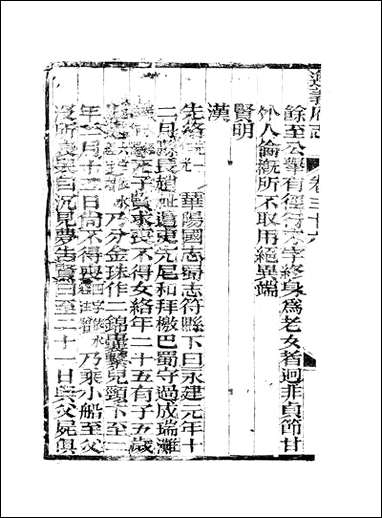 遵義府志 卷三十六
餘至公舉有徑行不字終身為老女者迥非貞節甘
外人倫概所不取用絕異端
賢明
漢
先絡 華陽國志蜀志符縣下曰永建元年十
二月縣長趙祉遣吏先尼和拜檄巴蜀守過成瑞灘
死子賢求喪不得女絡年二十五有子五歲
乃分金珠作二錦囊繫兒頸下至二
年二月十二日尚不得喪 乃乘小船至父
沒所哀哭自沉見夢告賢曰至二十一日與父屍俱